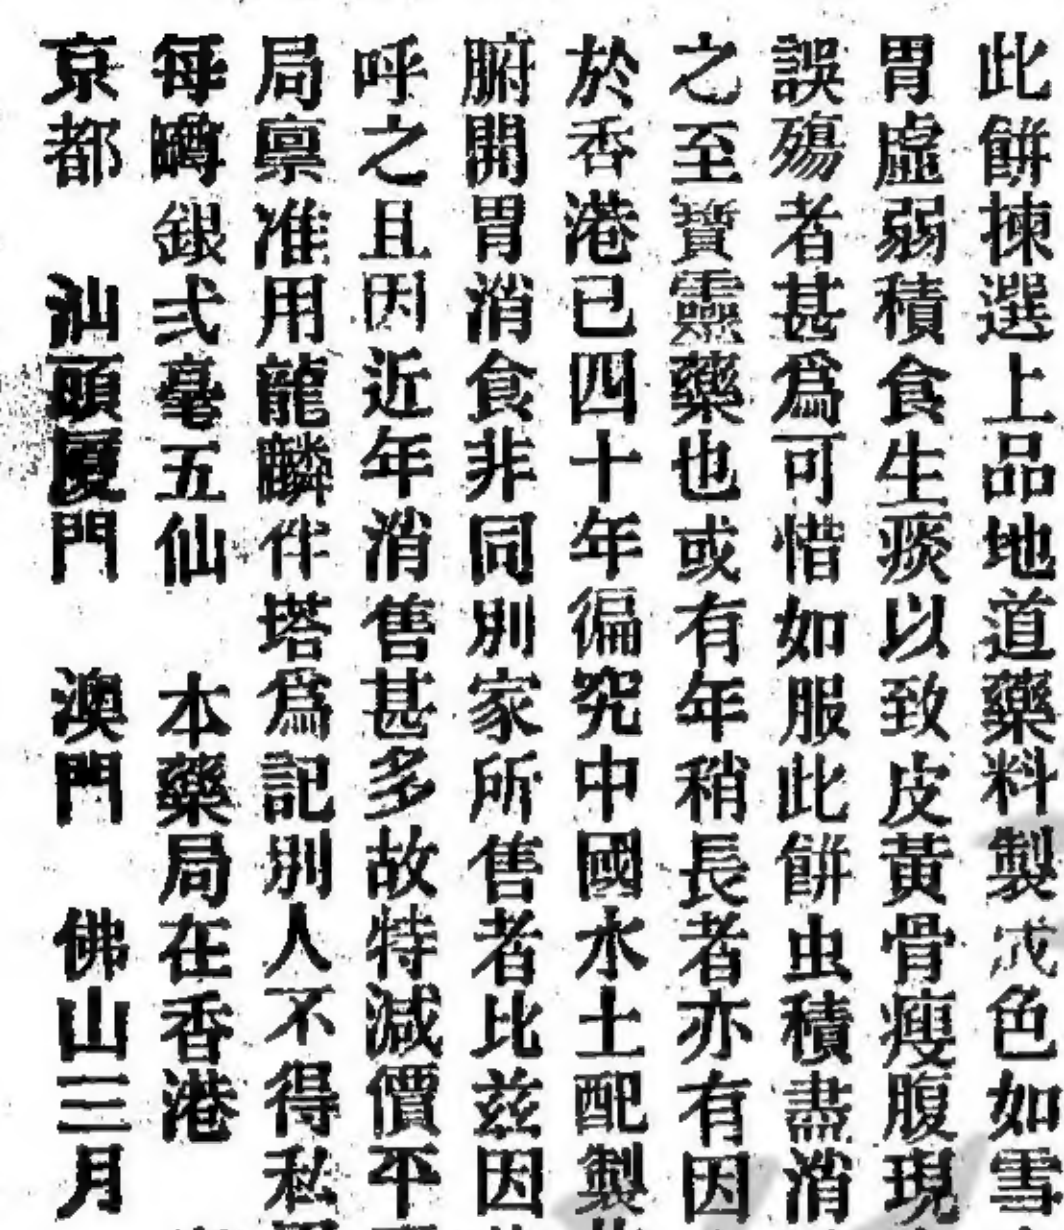 此餅揀選上品地道藥料製成色如雪
胃虛弱積食生痰以致皮黃骨瘦腹現
誤殤者甚爲可惜如服此餅虫積盡消
之至寶靈藥也或有年稍長者亦有因
於香港已四十年徧究中國水土配製
腑開胃消食非同別家所售者比茲因
呼之且因近年消售甚多故特減價平
局禀准用龍麟伴塔爲記別人不得私
每罇銀弍毫五仙 本藥局在香港
京都 汕頭厦門 澳門 佛山三月